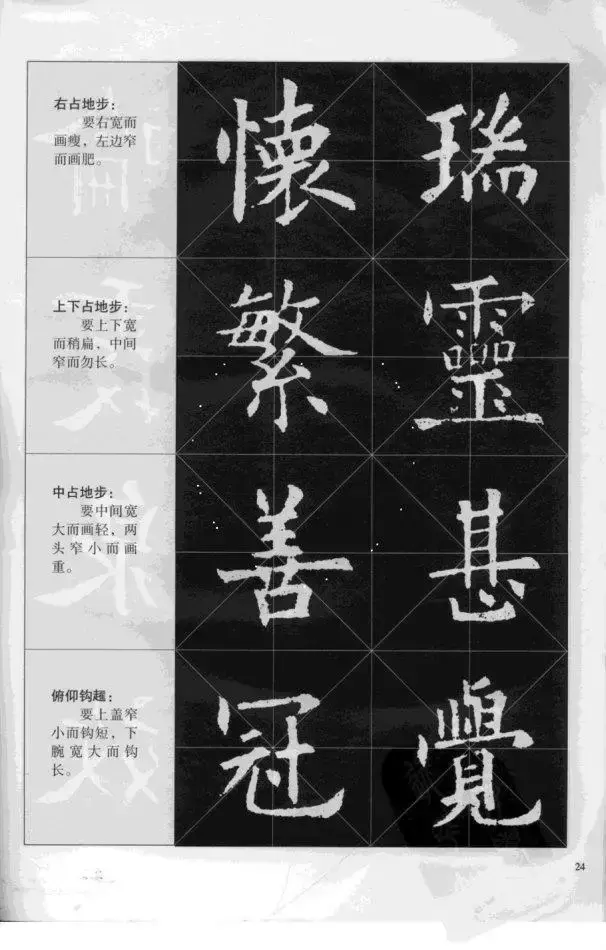 右占地步：
要右宽而
画瘦，左边窄
而画肥。
懷瑞
上下占地步：
要上下宽
而稍扁，中间
窄而勿长。
繁靈
中占地步：
要中间宽
大而画轻，两
头窄小而画
重。
善甚
俯仰钩趯：
要上盖窄
小而钩短，下
腕宽大而钩
长。
冠覺
24